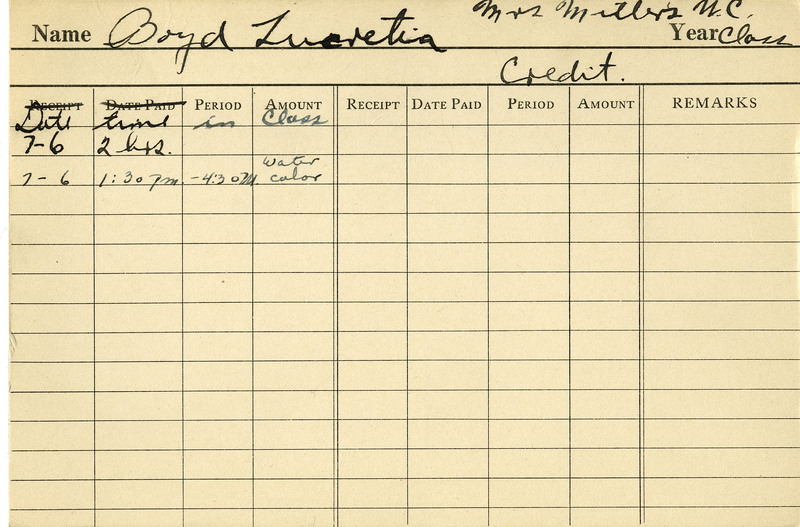 Mrs Miller's W.C.
Name Boyd Lucretia Year Class
Credit.
RECEIPT DATE PAID PERIOD AMOUNT RECEIPT DATE PAID PERIOD AMOUNT REMARKS
Date time in Class
7-6 2 hrs.
water
7-6 1:30 pm. -4:30 M. color